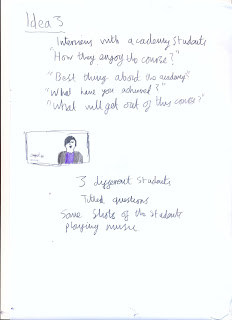 Idea 3
Interviews with academy students
"How they enjoy the course?"
"Best thing about the academy?"
"What have you achieved?"
"What will get out of this course?"
3 different students
Titled questions
Some shots of the students
playing music